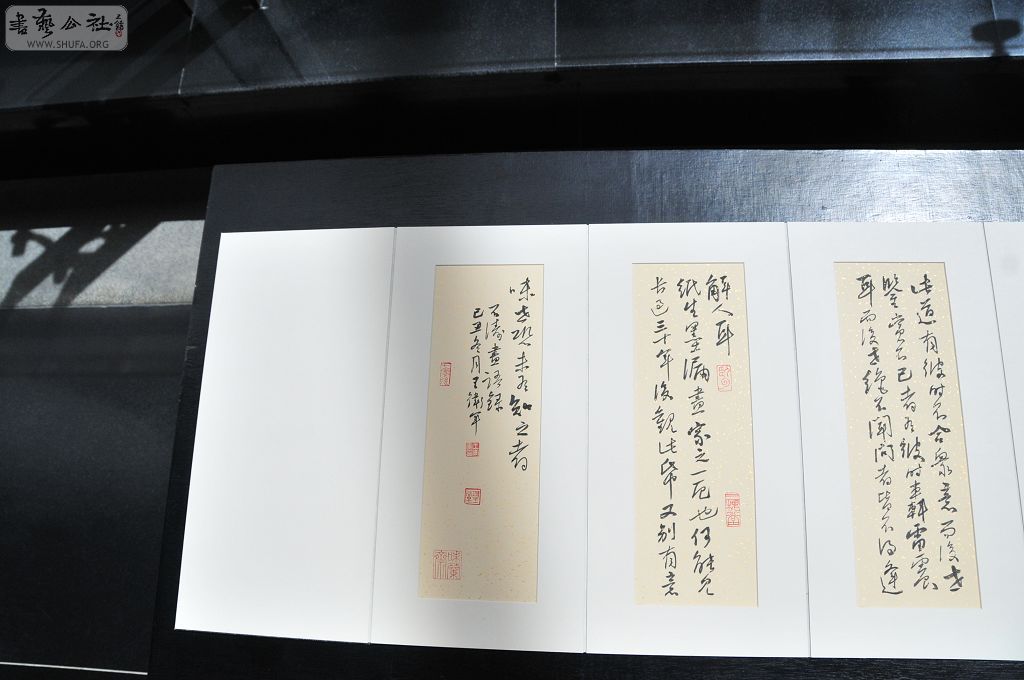 書藝公社
WWW.SHUFA.ORG
此道有彼時不合眾意而後世
鑒賞不已者有彼時轟雷震
耳而後世絕不聞問者皆不得逢
解人耳
紙生墨漏畫家之一厄也何能見
長過三十年後觀此幀又別有意
味在恐未有知之者
石濤畫語錄
己丑冬月王鏞